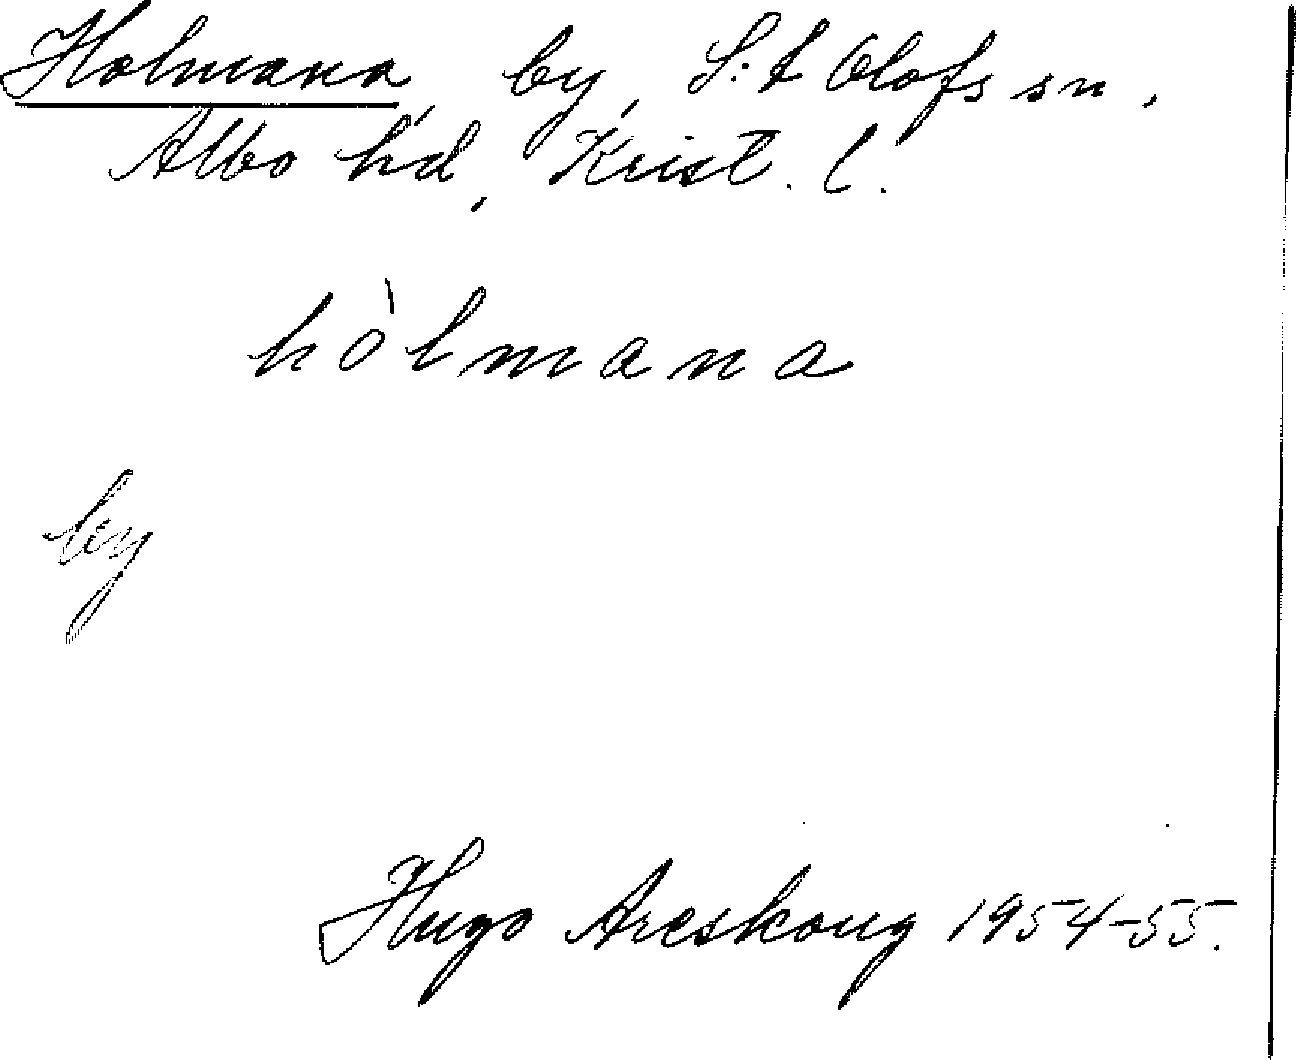 Holmana, by, S:t Olofs sn,
Albo hd, Krist. l.
hòlmana
by
Hugo Areskoug 1954-55.